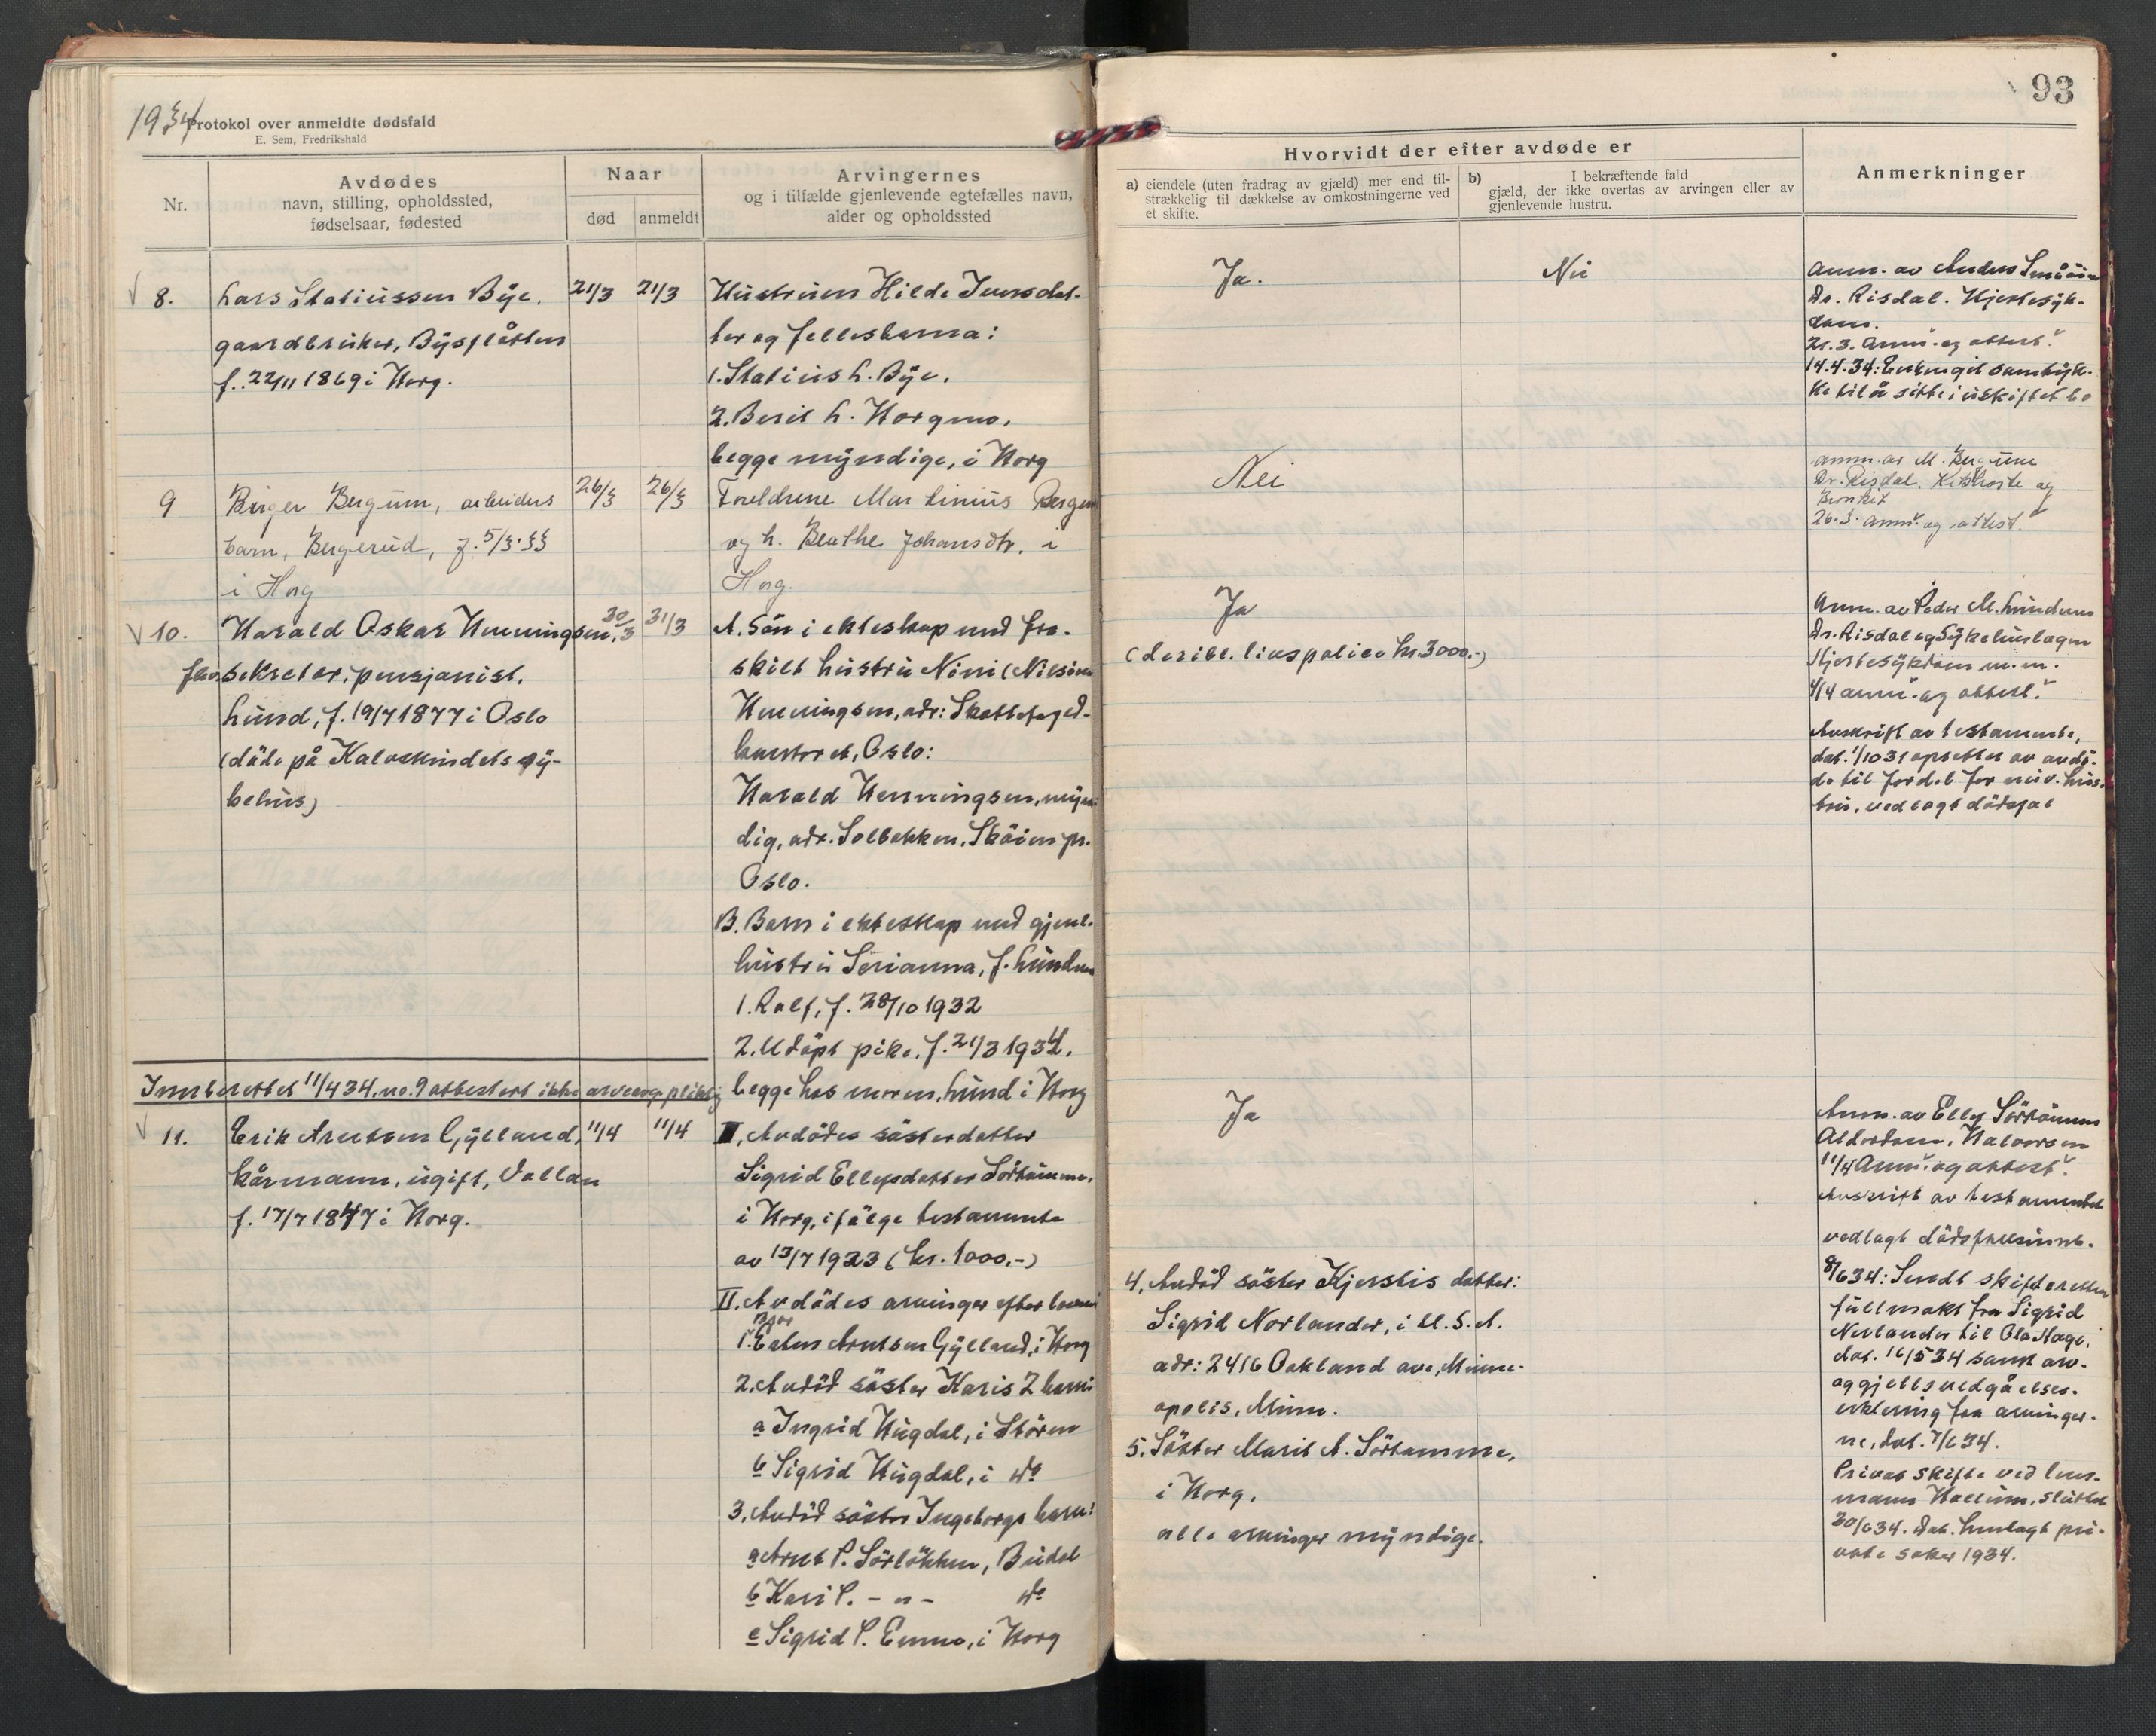 1934
Protokol over anmeldte dødsfald
E. Sem, Fredrikshald
Nr.
Avdødes
navn, stilling, opholdssted,
fødselsaar, fødested
Naar
død
anmeldt
Arvingernes
og i tilfælde gjenlevende egtefælles navn,
alder og opholdssted
8.
Lars Statiussen Bye,
gaardbruker, Bysflåtten
f. 22/11 1869 i Horg.
21/3
21/3
Hustruen Hilde Iversdat-
ter og fellesbarna:
1. Statius L. Bye,
2. Berit L. Horgmo,
begge myndige, i Horg
9
Birger Bergum, arbeiders
barn, Bergerud, f. 5/3.33
i Horg
26/3
26/3
Foreldrene Martinius Bergum
og h. Beathe Johansdtr. i
Horg.
10.
Harald Oskar Henningsen,
fhv. sekretær, pensjonist,
Lund, f. 19/7 1877 i Oslo
(døde på Kalvskindets sy-
kehus)
30/3
31/3
A. Søn i ekteskap med fra-
skilt hustru Nini (Nilsine)
Henningsen, adr: Skattefoged-
kontoret, Oslo:
Harald Henningsen, myn-
dig, adr. Solbakken, Skøien pr.
Oslo.
B. Barn i ekteskap med gjenl.
hustru Serianna, f. Lundmo
1. Ralf, f. 28/10 1932
2. Udøpt pike, f. 21/3 1934,
begge hos moren, Lund i Horg
Innberettet 11/4 34, no. 9 attestert ikke arveavg.pliktig
11.
Erik Arntsen Gylland,
kårmann, ugift, Vollan
f. 17/7 1847 i Horg.
11/4
11/4
I, Avdødes søsterdatter
Sigrid Ellefsdatter Sørtømme,
i Horg, ifølge testamente
av 13/7 1923 (kr. 1000.-)
II. Avdødes arvinger efter loven:
Bror
1. Esten Arntsen Gylland, i Horg
2. Avdød søster Karis 2 barn:
a Ingrid Hugdal, i Støren
b Sigrid Hugdal, i do
3. Avdød søster Ingeborgs barn:
a Arnt P. Sørløkken, Budal
b Kari P. - " - do
c Sigrid P. Enmo, i Horg
93
Hvorvidt der efter avdøde er
a) eiendele (uten fradrag av gjæld) mer end til-
strækkelig til dækkelse av omkostningerne ved
et skifte.
b) I bekræftende fald
gjæld, der ikke overtas av arvingen eller av
gjenlevende hustru.
Anmerkninger
Ja.
Nei
Anm. av Anders Småøien
Dr. Risdal. Hjertesyk-
dom.
21.3. Anm. og attest.
14.4.34: Enken git samtyk-
ke til å sitte i uskiftet bo
Nei
anm. av M. Bergum
Dr. Risdal. Kikhoste og
Bronkit
26.3. anm. og attest.
Ja
(deribl. livspolice kr. 3000.-)
Anm. av Peder M. Lundmo
Dr. Risdal og Sykehuslægen
Hjertesykdom m.m.
4/4 anm. og attest.
Avskrift av testamente,
dat. 1/10 31 opsettet av avdø-
de til fordel for nuv. hus-
tru, vedlagt dødsfal
Ja
Anm. av Ellef Sørtømme
Alderdom, Halvorsen
11/4 Anm. og attest.
Avskrift av testamentet
vedlagt dødsfallsanm.
8/6 34: Sendt skifteretten
fullmakt fra Sigrid
Norlander til Ola Hage,
dat. 16/5 34 samt arv-
og gjeldsvedgåelses-
erklering fra arvinger-
ne, dat. 7/6 34.
Privat skifte ved lens-
mann Hallum, sluttet
30/6 34. Dok. henlagt pri-
vate saker 1934.
4, Avdød søster Kjerstis datter:
Sigrid Norlander, i U.S.A.
adr: 2416 Oakland ave, Minne-
apolis, Minn.
5. Søster Marit A. Sørtømme,
i Horg.
alle arvinger myndige.